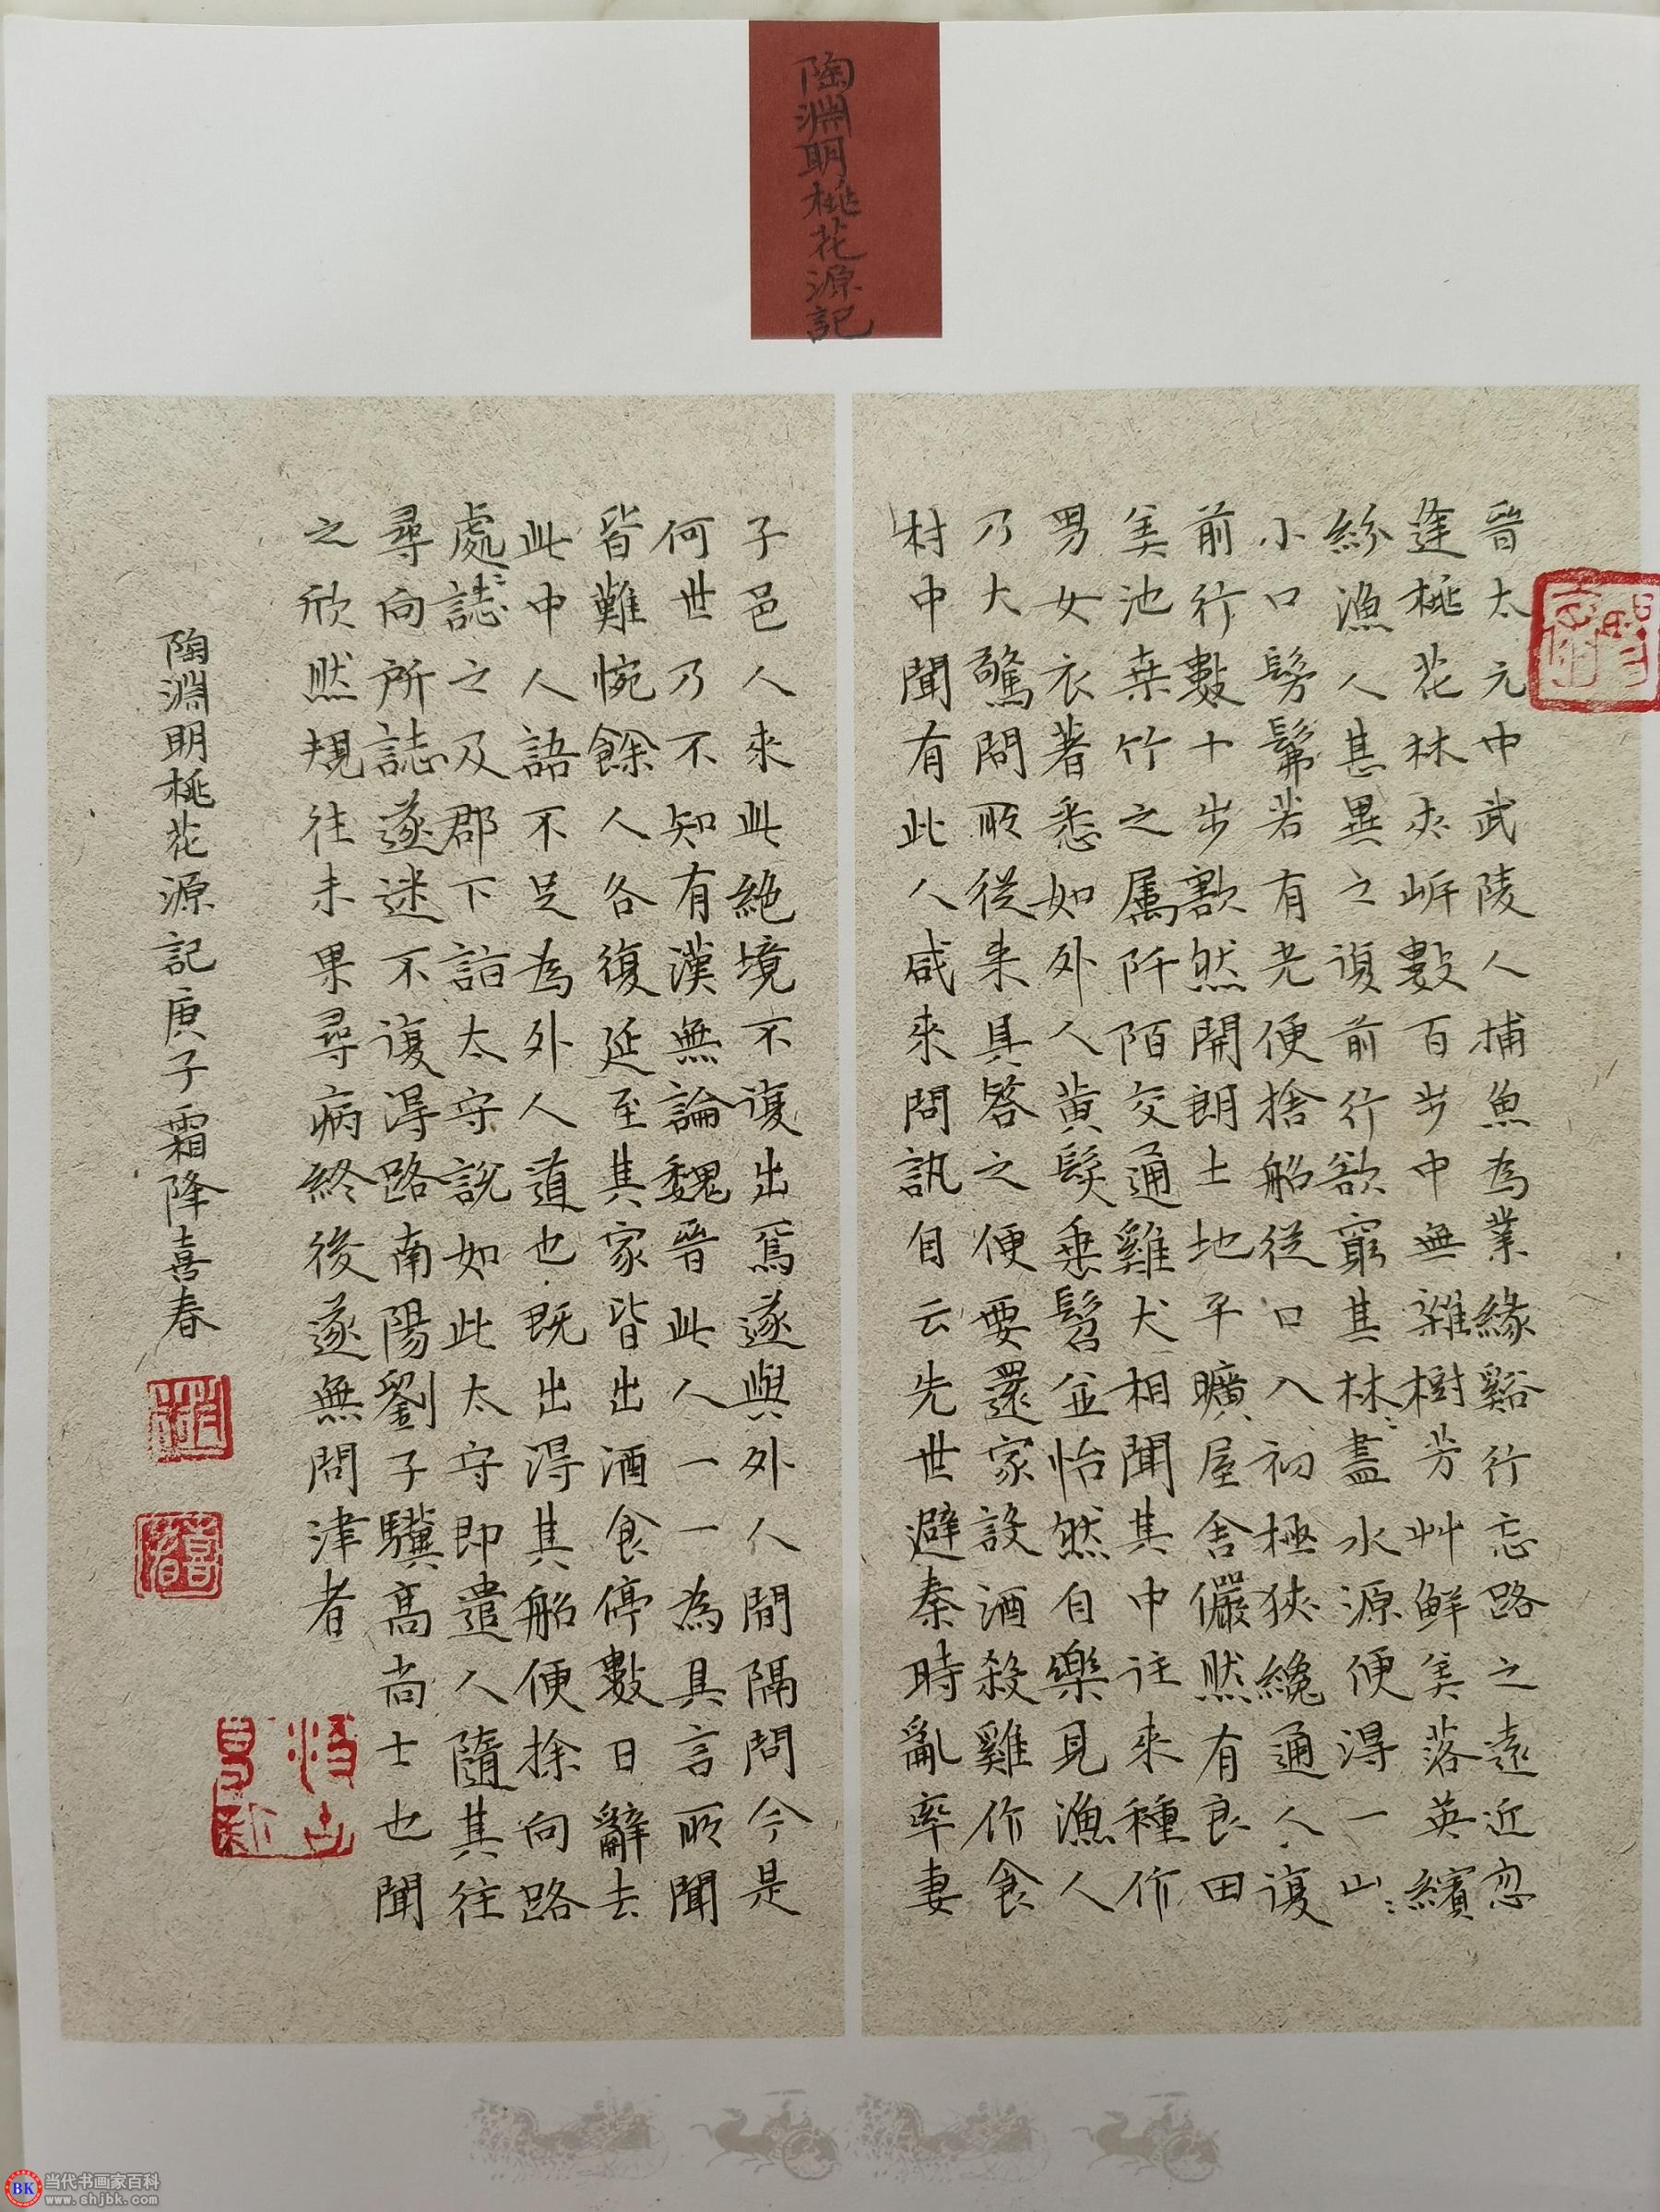 陶淵明桃花源記
晉太元中武陵人捕魚為業緣谿行忘路之遠近忽
逢桃花林夾岍數百步中無雜樹芳艸鮮美落英繽
紛漁人甚異之復前行欲窮其林〻盡水源便得一山〻
小口髣髴若有光便捨船從口入初極狹纔通人復
前行數十步豁然開朗土地平曠屋舍儼然有良田
美池桑竹之屬阡陌交通雞犬相聞其中往來種作
男女衣著悉如外人黃髮垂髫並怡然自樂見漁人
乃大驚問所從来具答之便要還家設酒殺雞作食
村中聞有此人咸來問訊自云先世避秦時亂率妻
子邑人來此絶境不復出焉遂與外人間隔問今是
何世乃不知有漢無論魏晉此人一一為具言所聞
皆難惋餘人各復延至其家皆出酒食停數日辭去
此中人語不足為外人道也既出得其船便捈向路
處〻誌之及郡下詣太守說如此太守即遣人隨其往
尋向所誌遂迷不復得路南陽劉子驥高尚士也聞
之欣然規往未果尋病終後遂無問津者
陶淵明桃花源記庚子霜降喜春
喜春
BK 当代书画家百科
www.shjbk.com